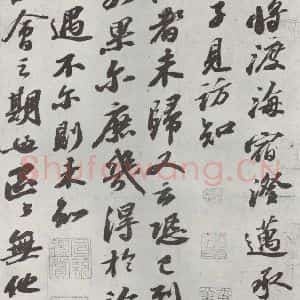 將渡海宿澄邁承
子見訪知
者未歸又云恐已到
果尔庶幾得於
遇不尔則未知
會之期也區〻無他
Shufawang.CN